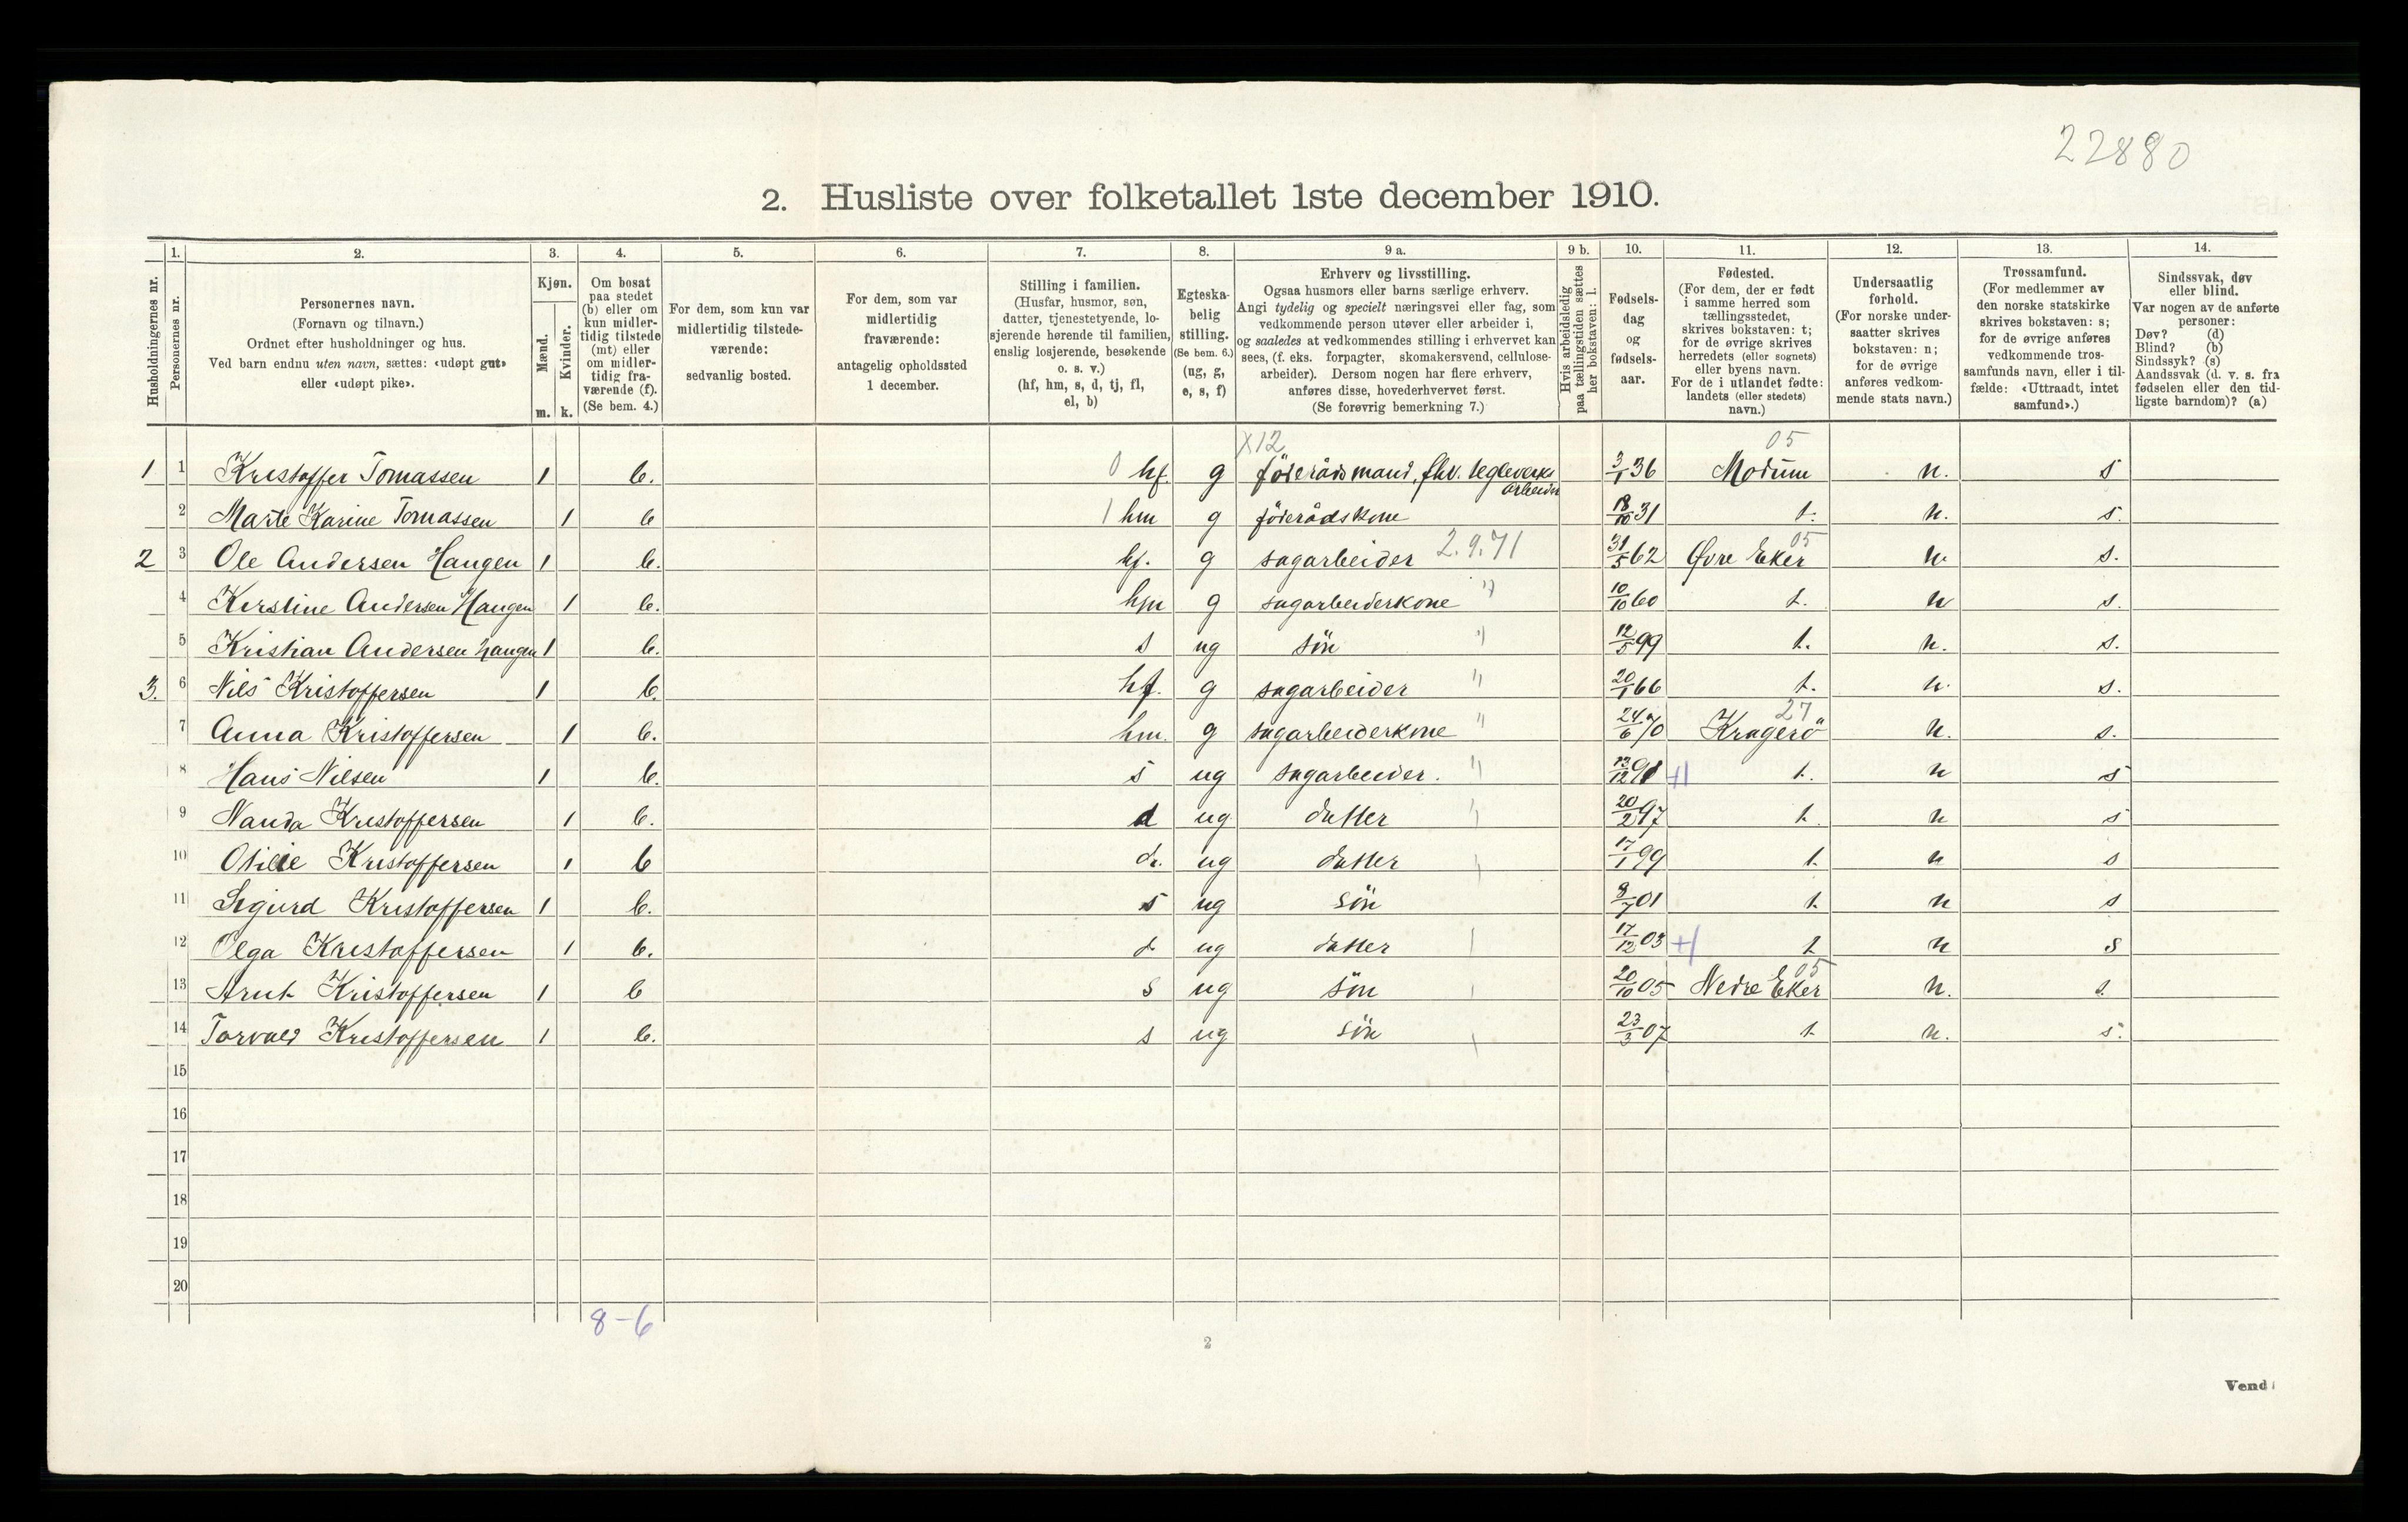 22880
2. Husliste over folketallet 1ste december 1910.
Husholdningernes nr.
1.
Personernes nr.
2.
Personernes navn.
(Fornavn og tilnavn.)
Ordnet efter husholdninger og hus.
Ved barn endnu uten navn, sættes: «udøpt gut»
eller «udøpt pike».
3.
Kjøn.
Mænd.
Kvinder.
m. k.
4.
Om bosat
paa stedet
(b) eller om
kun midler-
tidig tilstede
(mt) eller
om midler-
tidig fra-
værende (f).
(Se bem. 4.)
5.
For dem, som kun var
midlertidig tilstede-
værende:
sedvanlig bosted.
6.
For dem, som var
midlertidig
fraværende:
antagelig opholdssted
1 december.
7.
Stilling i familien.
(Husfar, husmor, søn,
datter, tjenestetyende, lo-
sjerende hørende til familien,
enslig losjerende, besøkende
o. s. v.)
(hf, hm, s, d, tj, fl,
el, b)
8.
Egteska-
belig
stilling.
(Se bem. 6.)
(ug, g,
e, s, f)
9 a.
Erhverv og livsstilling.
Ogsaa husmors eller barns særlige erhverv.
Angi tydelig og specielt næringsvei eller fag, som
vedkommende person utøver eller arbeider i,
og saaledes at vedkommendes stilling i erhvervet kan
sees, (f. eks. forpagter, skomakersvend, cellulose-
arbeider). Dersom nogen har flere erhverv,
anføres disse, hovederhvervet først.
(Se forøvrig bemerkning 7.)
9 b.
Hvis arbeidsledig
paa tællingstiden sættes
her bokstaven: l.
10.
Fødsels-
dag
og
fødsels-
aar.
11.
Fødested.
(For dem, der er født
i samme herred som
tællingsstedet,
skrives bokstaven: t;
for de øvrige skrives
herredets (eller sognets)
eller byens navn.
For de i utlandet fødte:
landets (eller stedets)
navn.)
12.
Undersaatlig
forhold.
(For norske under-
saatter skrives
bokstaven: n;
for de øvrige
anføres vedkom-
mende stats navn.)
13.
Trossamfund.
(For medlemmer av
den norske statskirke
skrives bokstaven: s;
for de øvrige anføres
vedkommende tros-
samfunds navn, eller i til-
fælde: «Uttraadt, intet
samfund».)
14.
Sindssvak, døv
eller blind.
Var nogen av de anførte
personer:
Døv? (d)
Blind? (b)
Sindssyk? (s)
Aandssvak (d. v. s. fra
fødselen eller den tid-
ligste barndom)? (a)
X12 05
1 1 Kristoffer Tomassen 1 b. 0 hf. g föderåds mand, fhv. teglverks 3/1 36 Modum n. s
arbeider
2 Marte Karine Tomassen 1 b 1 hm g föderådskone 18/10 31 t. n. s.
2 3 Ole Andersen Haugen 1 b. hf. g sagarbeider 2.9.71 31/5 62 Øvre Eker 05 n. s.
4 Kirstine Andersen Haugen 1 b. hm g sagarbeiderkone " 10/10 60 t. n s.
5 Kristian Andersen Haugen 1 b. s ug sön " 12/5 99 t. n. s.
3. 6 Nils Kristoffersen 1 b. hf. g sagarbeider " 20/1 66 t. n. s.
7 Anna Kristoffersen 1 b. hm. g sagarbeiderkone " 24/6 70 Kragerö 27 n. s.
8 Hans Nilsen 1 b. s ug sagarbeider. " 13/12 91 +1 t. n s
9 Nanda Kristoffersen 1 b. d ug datter " 20/2 97 t. n s
10 Otilie Kristoffersen 1 b d. ug datter 17/1 99 t. n s
11 Sigurd Kristoffersen 1 b. s ug sön 9/7 01 t. n s
12 Olga Kristoffersen 1 b. d ug datter 17/12 03 +1 t n s
13 Arnt Kristoffersen 1 b s ug sön 20/10 05 Nedre Eker 05 n. s.
14 Torvald Kristoffersen 1 b. s ug sön 23/3 07 t n. s.
15
16
17
18
19
20
8-6
2
Vend